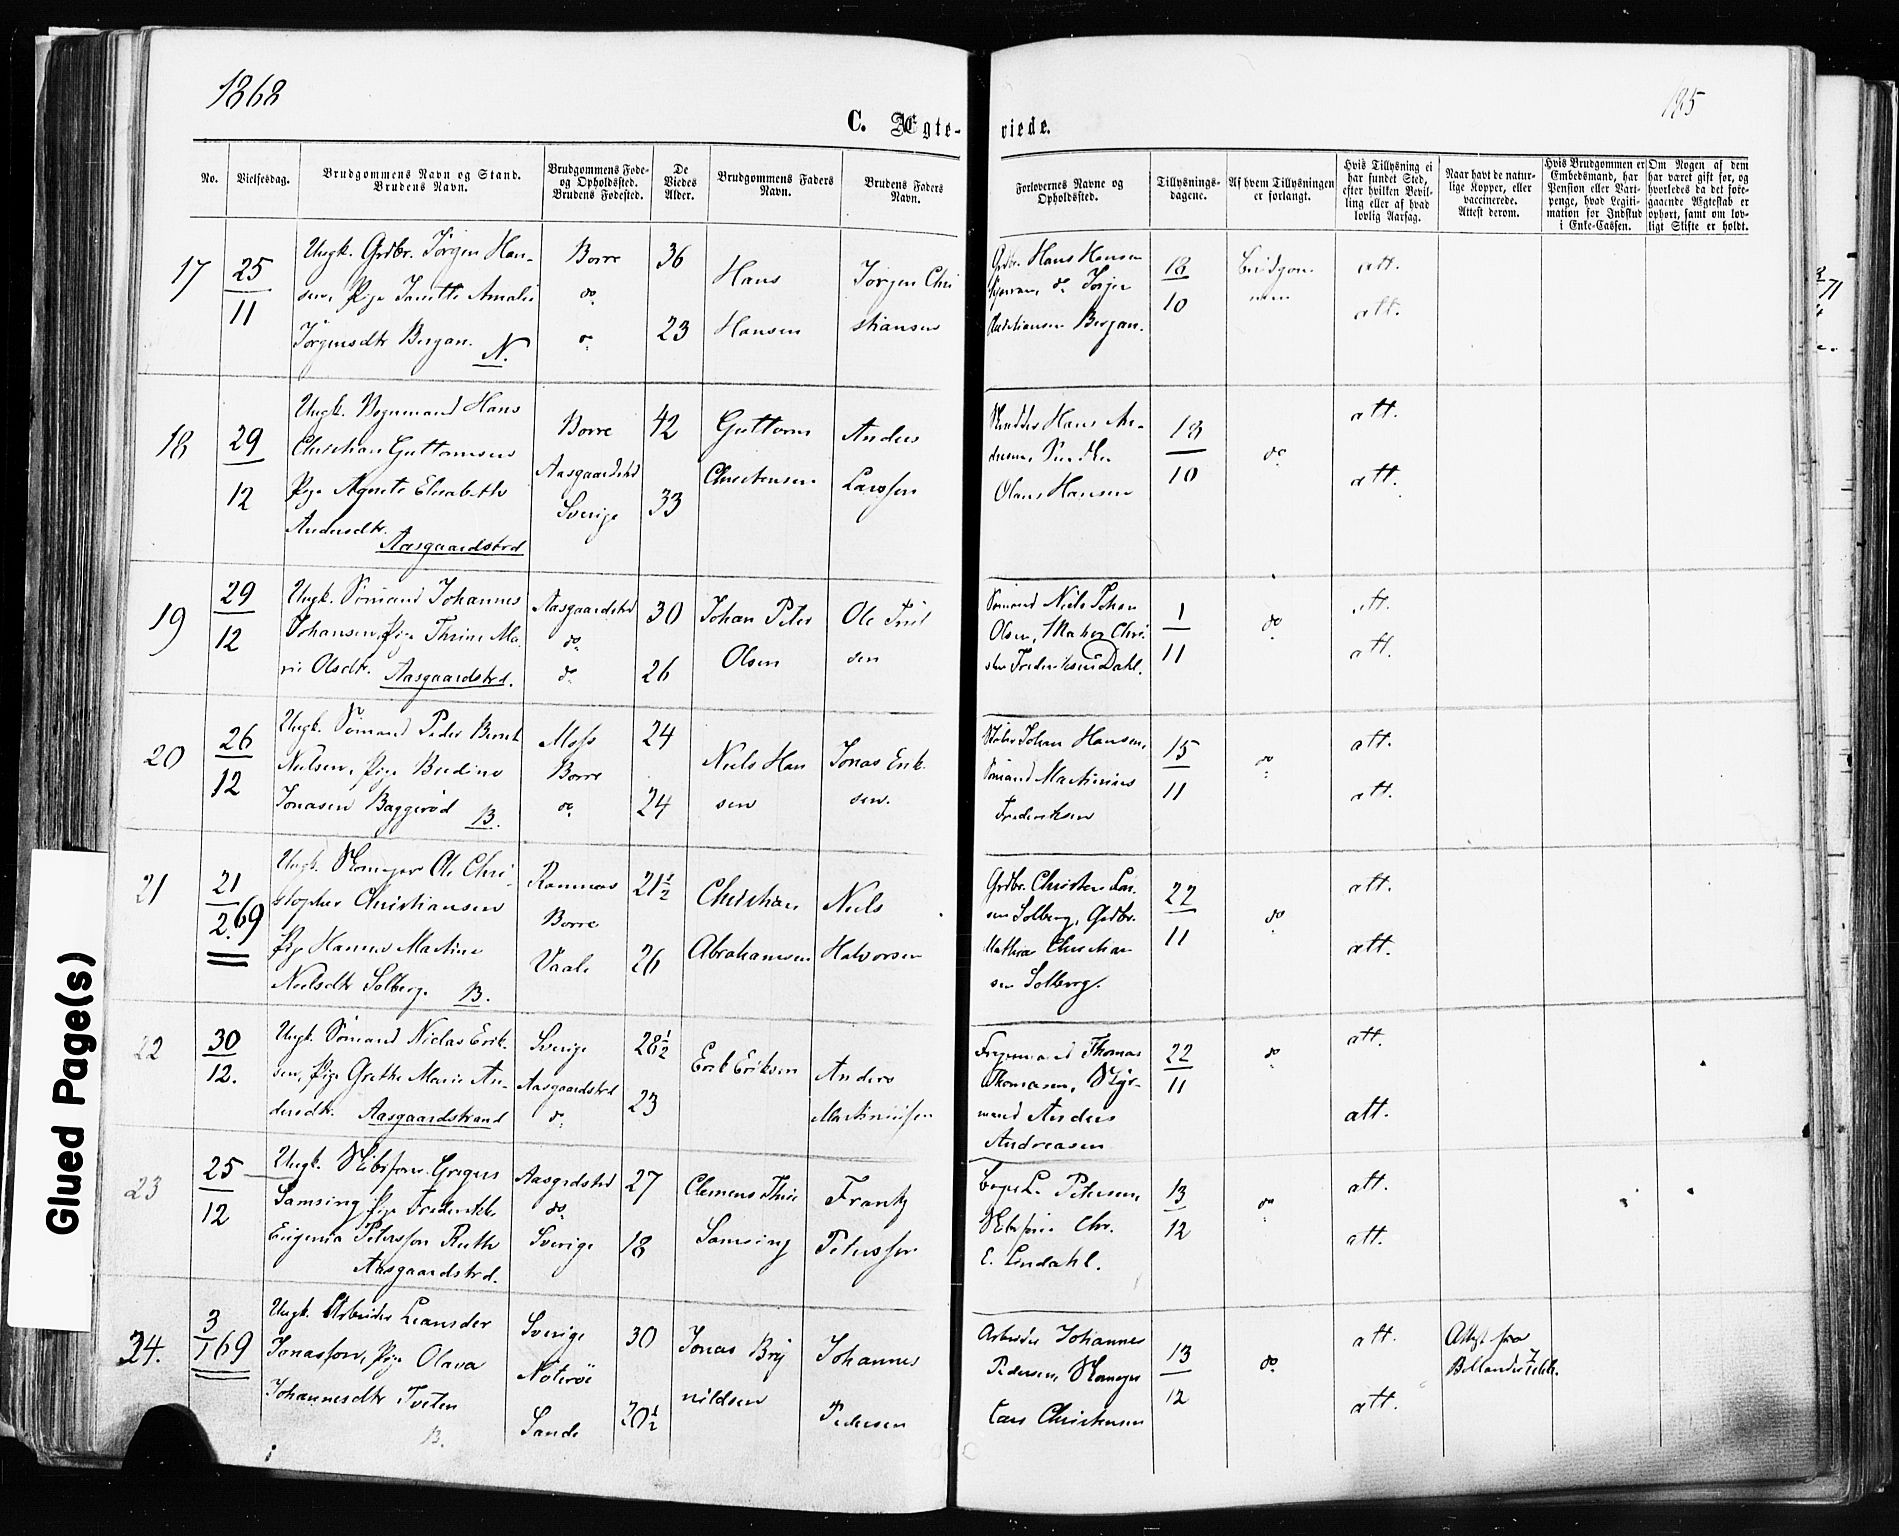 1868
185
C. Ægte-
viede.
No.
Vielsesdag.
Brudgommens Navn og Stand.
Brudens Navn.
Brudgommens Føde-
og Opholdssted.
Brudens Fødested.
De
Viedes
Alder.
Brudgommens Faders
Navn.
Brudens Faders
Navn.
Forlovernes Navne og
Opholdssted.
Tillysnings-
dagene.
Af hvem Tillysningen
er forlangt.
Hvis Tillysning ei
har fundet Sted,
efter hvilken Bevil-
ling eller af hvad
lovlig Aarsag.
Naar havt de natur-
lige Kopper, eller
vaccinerede.
Attest derom.
Hvis Brudgommen er
Embedsmand, har
Pension eller Vart-
penge, hvad Legiti-
mation for Indskud
i Enke-Cassen.
Om Nogen af dem
har været gift før, og
hvorledes da det fore-
gaaende Ægteskab er
ophørt, samt om lov-
ligt Skifte er holdt.
17
25
11
Ungk. Grdbr. Jørgen Han-
sen, Pige Janette Amalie
Jørgensdtr Bergan.
N.
Borre
do
do
36
23
Hans
Hansen
Jørgen Chri
stiansen
Grdbr. Hans Hansen
do Jørgen
Christiansen Bergan.
18
10
Brudgom-
men
att.
att.
18
29
12
Ungk. Vognmand Hans
Christian Guttormsen
Pige Agnete Elisabeth
Andersdtr.
Aasgaardstrd
Borre
Aasgaardstrd
Sverige
42
33
Guttorm
Christensen
Anders
Larssen
Hans An-
dersen,
Olaus Hansen
18
10
do
att.
att.
19
29
12
Ungk. Sømand Johannes
Johansen, Pige Thrine Ma-
rie Olsdtr.
Aasgaardstrd.
Aasgaardstrd
do
do
30
26
Johan Peter
Olsen
Ole Juel
sen
Sømand Niels Johan
Olsen, Chri-
sten Frederiksen Dahl.
1
11
do
att.
att.
20
26
12
Ungk. Sømand Peder Bernt
Nielsen, Pige Bredine
Jonasen Baggerød
B.
Moss
Borre
do
24
24
Niels Han
sen
Jonas Erik-
sen.
Johan Hansen,
Sømand Martinius
Frederiksen
15
11
do
att.
att.
21
21
2.69
Ungk. Skomager Ole Chri-
stopher Christiansen
Pige Hanna Martine
Nielsdtr Solberg.
B.
Ramnæs
Borre
Vaale
21½
26
Christian
Abrahamsen
Niels
Halvorsen
Grdbr. Christen Lar-
sen Solberg, Grdbr.
Mathias Christian
sen Solberg.
22
11
do
att.
att.
22
30
12.
Ungk. Sømand Niclas Erik-
sen, Pige Grethe Marie An-
dersdtr.
Aasgaardstrand
Sverige
Aasgaardstrd
do
28½
23
Erik Eriksen
Anders
Martiniusen
Thomas
Thomasen, Styr-
mand Anders
Andreasen
22
11
do
att.
att.
23
25
12
Ungk. Skibsfører Gregers
Samsing, Pige Frederikke
Eugenia Petersson Ruth
Aasgaardstrd.
Aasgrdstrd
do
Sverige
27
18
Clemens Thue
Samsing
Frantz
Petersson
L. Petersen,
Skibsfører Chr.
E. Lindahl.
13
12
do
att.
att.
24.
3
1 69
Ungk. Arbeider Leander
Jonasson, Pige Olava
Johannesdtr Tveten
B.
Sverige
Nøterøe
Sande
30
20½
Jonas Bry
nildsen
Johannes
Pedersen
Arbeider Johannes
Pedersen, Skomager
Lars Christensen
13
12
do
att.
att.
Attest fra
Glued Page(s)